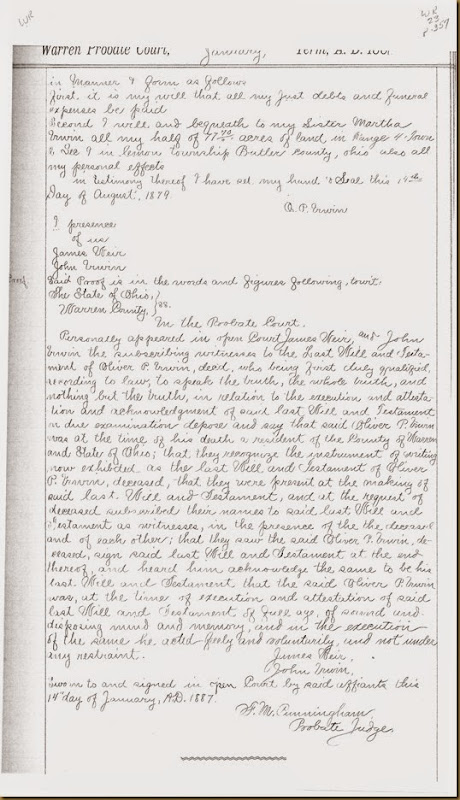 WR
WR
23
P. 359
Warren Probate Court, January, Term, A. D. 188
in Manner & form as follows
First. it is my will that all my just debts and funeral
expenses be paid
Second I will and bequeath to my sister Martha
Irwin all my half of 77 acres of land in Range 4 Town
& Sec 7 in Lemon Township Butler county, Ohio also all
my personal effects
in testimony thereof I have set my hand & Seal this 14th
Day of August, 1879
O. P. Irwin
I presence
of us
James Weir
John Irwin
Said Proof is in the words and figures following, towit;
The State of Ohio,
Warren County, } SS.
In the Probate Court.
Personally appeared in open Court James Weir, and John
Irwin the subscribing witnesses to the Last Will and Testa-
ment of Oliver P. Irwin, decd, who being first duly qualified,
according to law, to speak the truth, the whole truth, and
nothing but the truth, in relation to the execution and attesta-
tion and acknowledgment of said last Will and Testament
n due examination depose and say that said Oliver P. Irwin
was at the time of his death a resident of the County of Warren
and State of Ohio; that they recognize the instrument of writing
now exhibited as the last Will and Testament of Oliver
P. Irwin, deceased, that they were present at the making of
said last Will and Testament, and at the request of
deceased subscribed their names to said last Will and
Testament as witnesses, in the presence of the the deceased
and of each other; that they saw the said Oliver P. Irwin, de-
ceased, sign said last Will and Testament at the end
thereof, and heard him acknowledge the same to be his
last Will and Testament that the said Oliver P. Irwin
was, at the time of execution and attestation of said
last Will and Testament of full age, of sound and
disposing mind and memory, and in the execution
of the same he acted freely and voluntarily, and not under
any restraint.
James Weir,
John Irwin,
Sworn to and signed in open Court by said affiants this
14" day of January, A.D. 1887.
F. M. Cunningham
Probate Judge